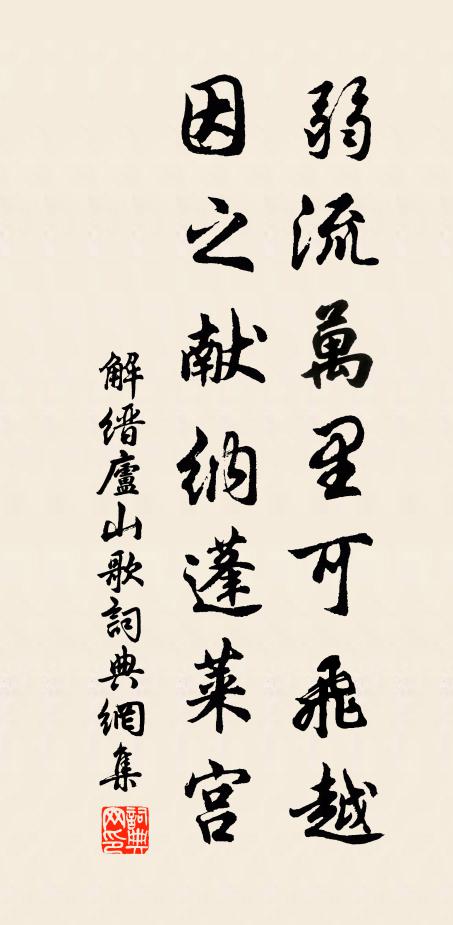 弱流萬里可飛越
因之献纳蓬萊宮
解缙廬山歌詞典網集
詞典
网印